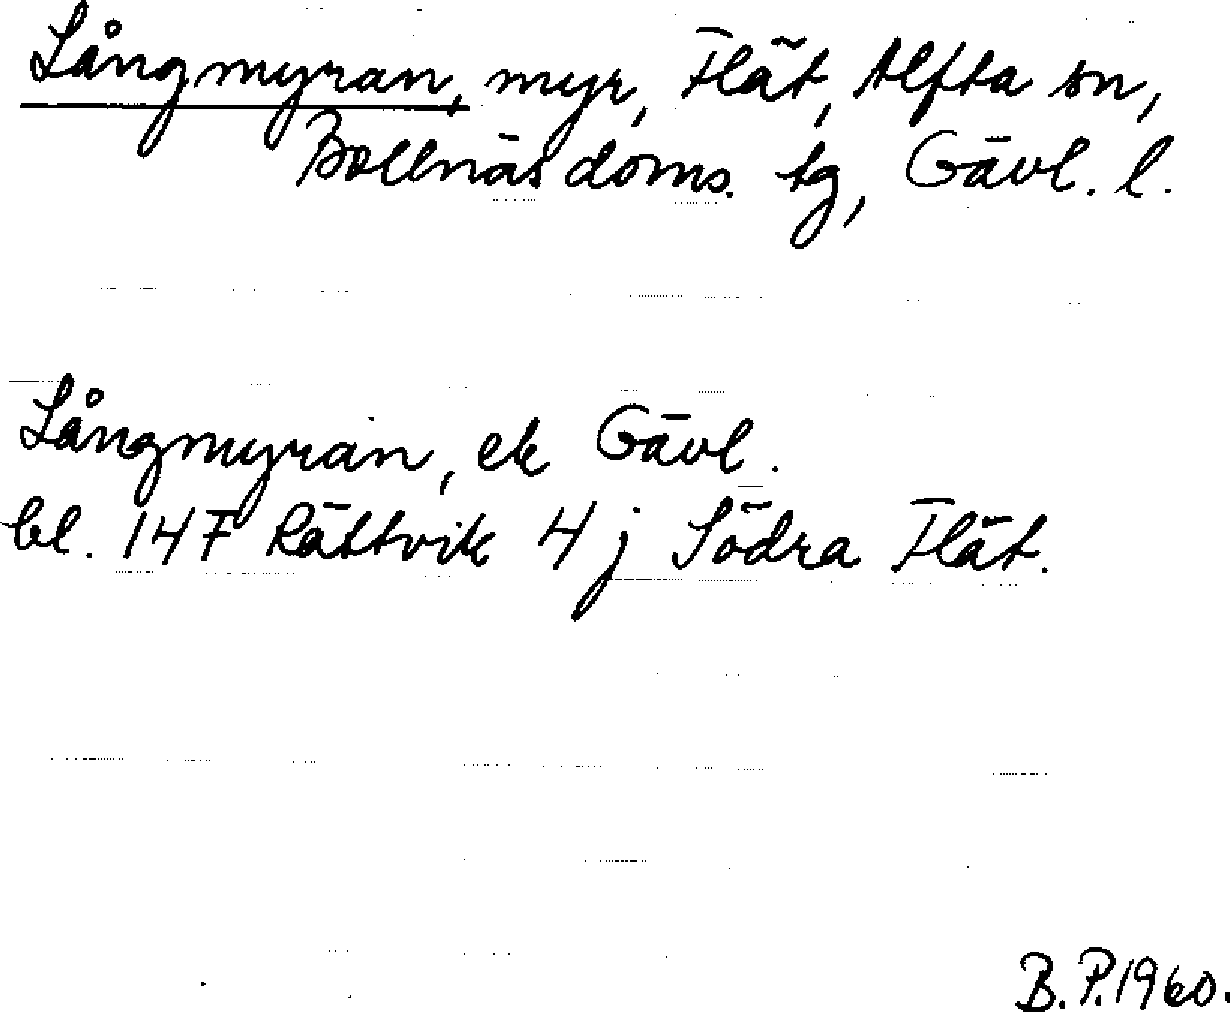 Långmyran, myr, Flät, Alfta sn,
Bollnäs doms. tg, Gävl. l.
Långmyran, ek Gävl.
bl. 14F Rättvik 4j Södra Flät.
B.P. 1960.